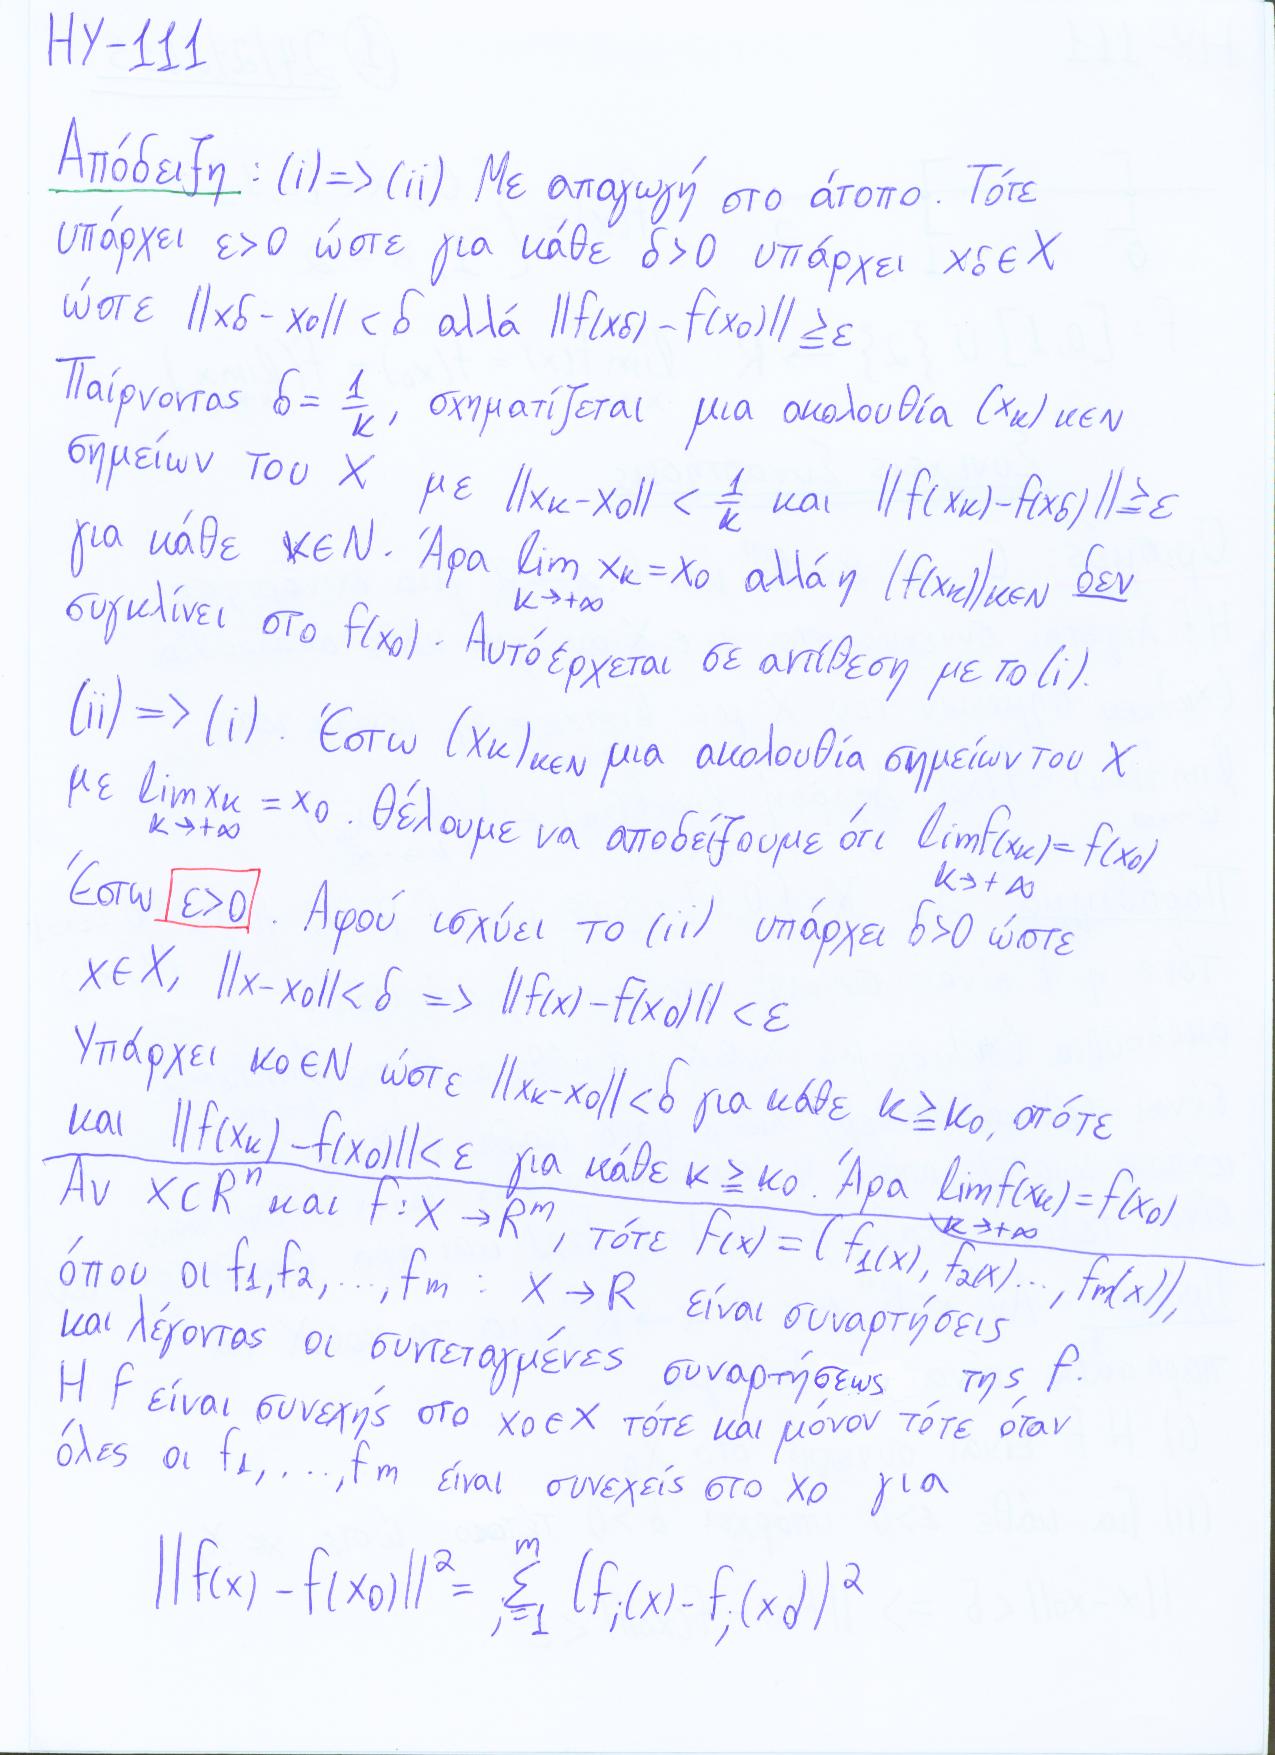 ΗΥ-111
Απόδειξη : (i) => (ii) Με απαγωγή στο άτοπο. Τότε
υπάρχει ε>0 ώστε για κάθε δ>0 υπάρχει xδ∈X
ώστε ||xδ - x0|| < δ αλλά ||f(xδ) - f(x0)|| ≧ ε
Παίρνοντας δ = 1/κ, σχηματίζεται μια ακολουθία (xκ)κ∈N
σημείων του X με ||xκ - x0|| < 1/κ και ||f(xκ) - f(xδ)|| ≧ ε
για κάθε κ∈N. Άρα lim xκ = x0 αλλά η (f(xκ))κ∈N δεν
κ→+∞
συγκλίνει στο f(x0). Αυτό έρχεται σε αντίθεση με το (i).
(ii) => (i). Έστω (xκ)κ∈N μια ακολουθία σημείων του X
με lim xκ = x0. Θέλουμε να αποδείξουμε ότι lim f(xκ) = f(x0)
κ→+∞ κ→+∞
Έστω ε>0. Αφού ισχύει το (ii) υπάρχει δ>0 ώστε
x∈X, ||x - x0|| < δ => ||f(x) - f(x0)|| < ε
Υπάρχει κ0∈N ώστε ||xκ - x0|| < δ για κάθε κ ≧ κ0, οπότε
και ||f(xκ) - f(x0)|| < ε για κάθε κ ≧ κ0. Άρα lim f(xκ) = f(x0)
κ→+∞
Αν X⊂Rⁿ και f: X → Rᵐ, τότε f(x) = (f1(x), f2(x)..., fm(x)),
όπου οι f1, f2, ..., fm : X → R είναι συναρτήσεις
και λέγοντας οι συντεταγμένες συναρτήσεως της f.
Η f είναι συνεχής στο x0∈X τότε και μόνον τότε όταν
όλες οι f1, ..., fm είναι συνεχείς στο x0 για
||f(x) - f(x0)||² = Σ (fj(x) - fj(x0))²
m
j=1